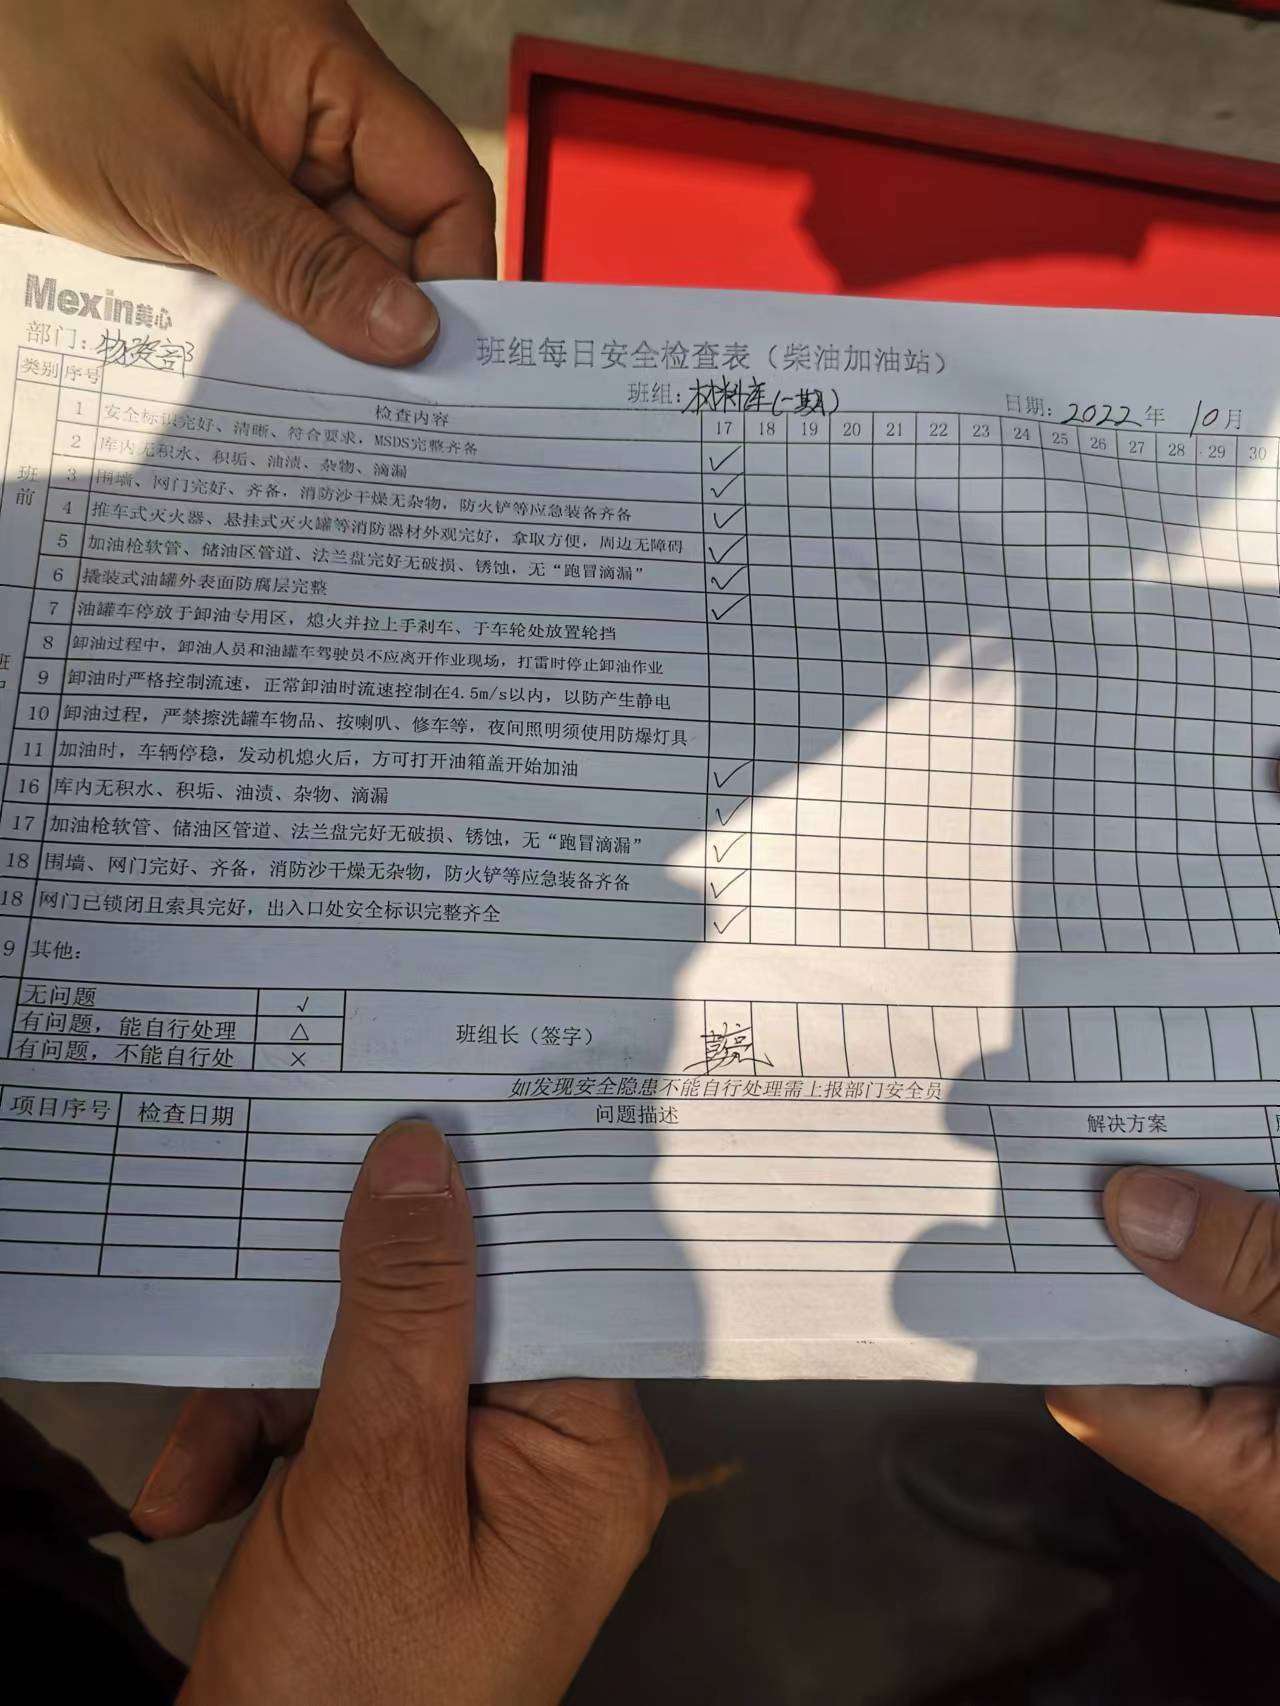 Mexin美心
班组每日安全检查表（柴油加油站）
部门：物资部 班组：材料库(一期) 日期：2022年 10月
类别 序号 检查内容 17 18 19 20 21 22 23 24 25 26 27 28 29 30
班前
1 安全标识完好、清晰、符合要求，MSDS完整齐备 ✓
2 库内无积水、积垢、油渍、杂物、滴漏 ✓
3 围墙、网门完好、齐备，消防沙干燥无杂物，防火铲等应急装备齐备 ✓
4 推车式灭火器、悬挂式灭火罐等消防器材外观完好，拿取方便，周边无障碍 ✓
5 加油枪软管、储油区管道、法兰盘完好无破损、锈蚀，无“跑冒滴漏” ✓
6 撬装式油罐外表面防腐层完整 ✓
7 油罐车停放于卸油专用区，熄火并拉上手刹车、于车轮处放置轮挡
8 卸油过程中，卸油人员和油罐车驾驶员不应离开作业现场，打雷时停止卸油作业
9 卸油时严格控制流速，正常卸油时流速控制在4.5m/s以内，以防产生静电
10 卸油过程，严禁擦洗罐车物品、按喇叭、修车等，夜间照明须使用防爆灯具
11 加油时，车辆停稳，发动机熄火后，方可打开油箱盖开始加油 ✓
16 库内无积水、积垢、油渍、杂物、滴漏 ✓
17 加油枪软管、储油区管道、法兰盘完好无破损、锈蚀，无“跑冒滴漏” ✓
18 围墙、网门完好、齐备，消防沙干燥无杂物，防火铲等应急装备齐备 ✓
18 网门已锁闭且索具完好，出入口处安全标识完整齐全 ✓
9 其他：
无问题 √
有问题，能自行处理 △
有问题，不能自行处 ×
班组长（签字）
如发现安全隐患不能自行处理需上报部门安全员
项目序号 检查日期 问题描述 解决方案